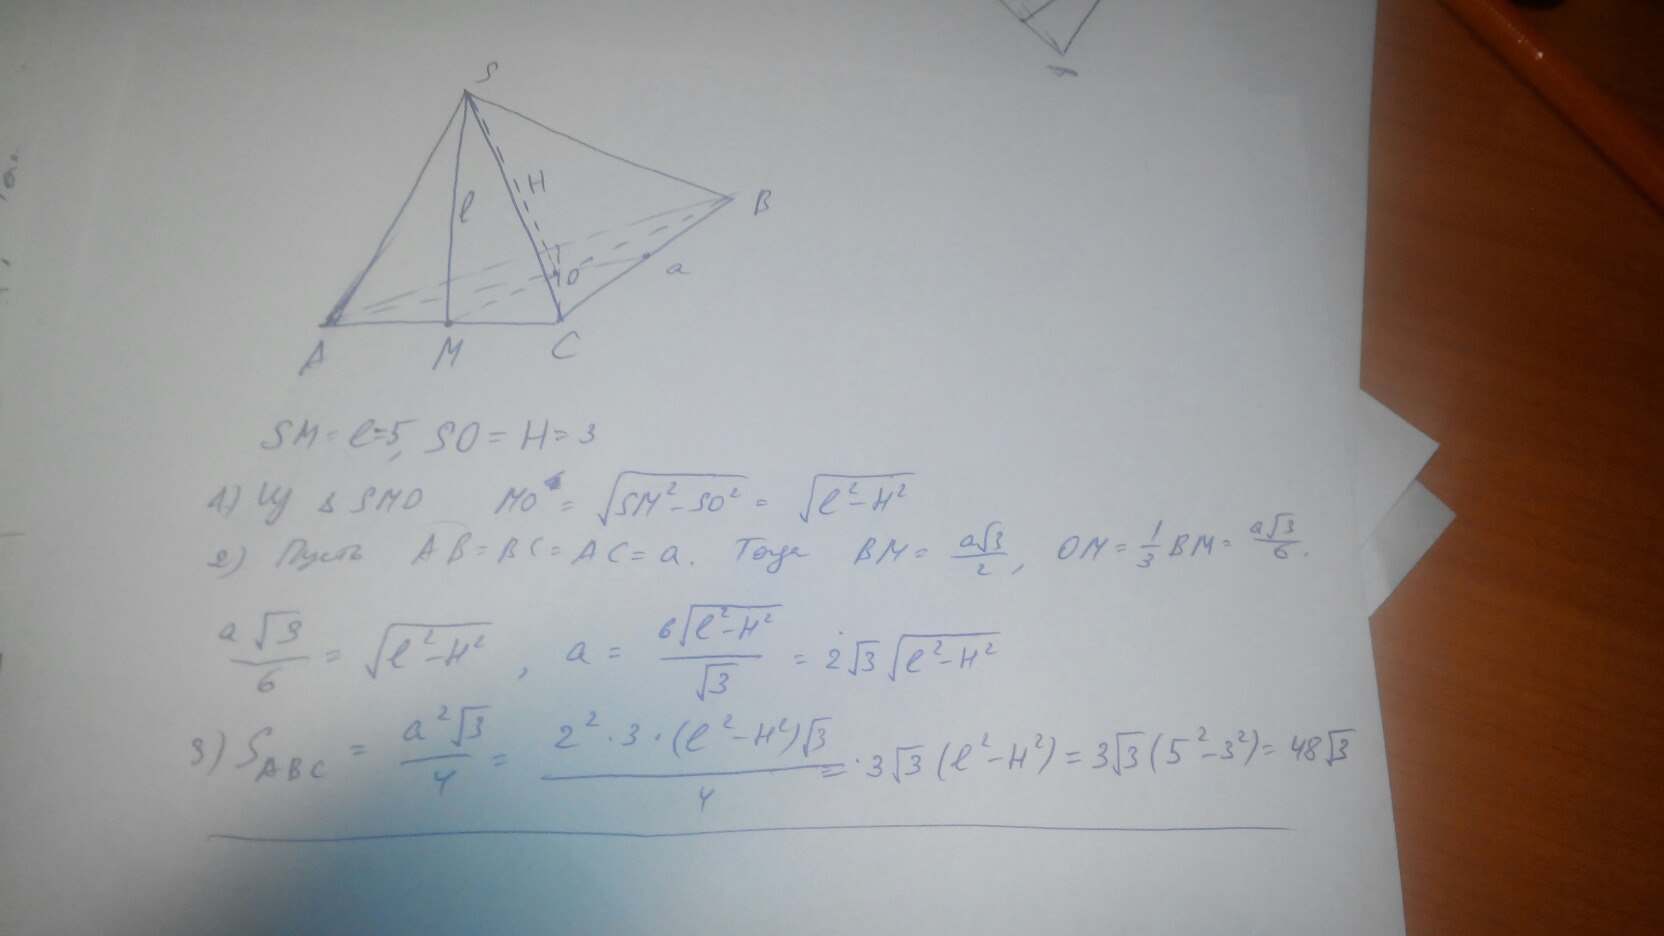 S
H
l
B
O
a
A M C
SM = l = 5, SO = H = 3
1) Из Δ SMO MO = √(SM² - SO²) = √(l² - H²)
2) Пусть AB = BC = AC = a. Тогда BM = a√3/2, OM = 1/3 BM = a√3/6.
a√3/6 = √(l² - H²), a = 6√(l² - H²)/√3 = 2√3 √(l² - H²)
3) S_ABC = a²√3/4 = 2² · 3 · (l² - H²)√3/4 = 3√3 (l² - H²) = 3√3 (5² - 3²) = 48√3